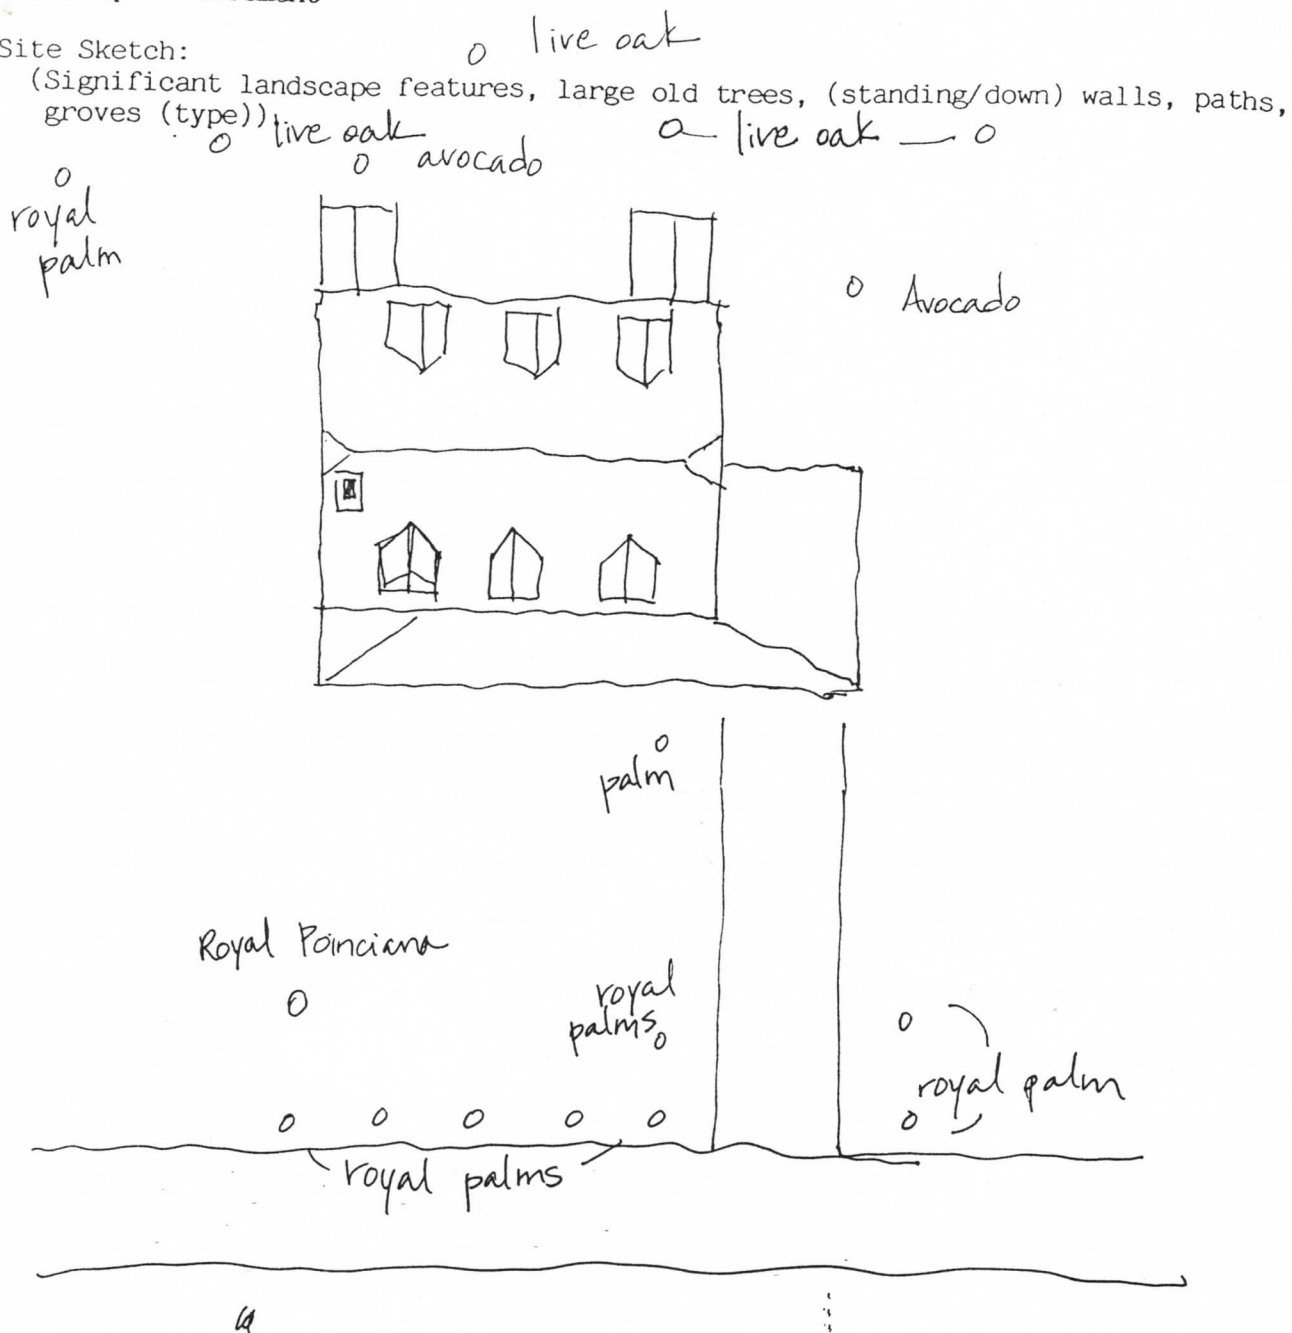 Site Sketch:
live oak
(Significant landscape features, large old trees, (standing/down) walls, paths,
groves (type))
live oak
live oak
avocado
royal
palm
Avocado
palm
Royal Poinciana
royal
palms
royal palm
royal palms